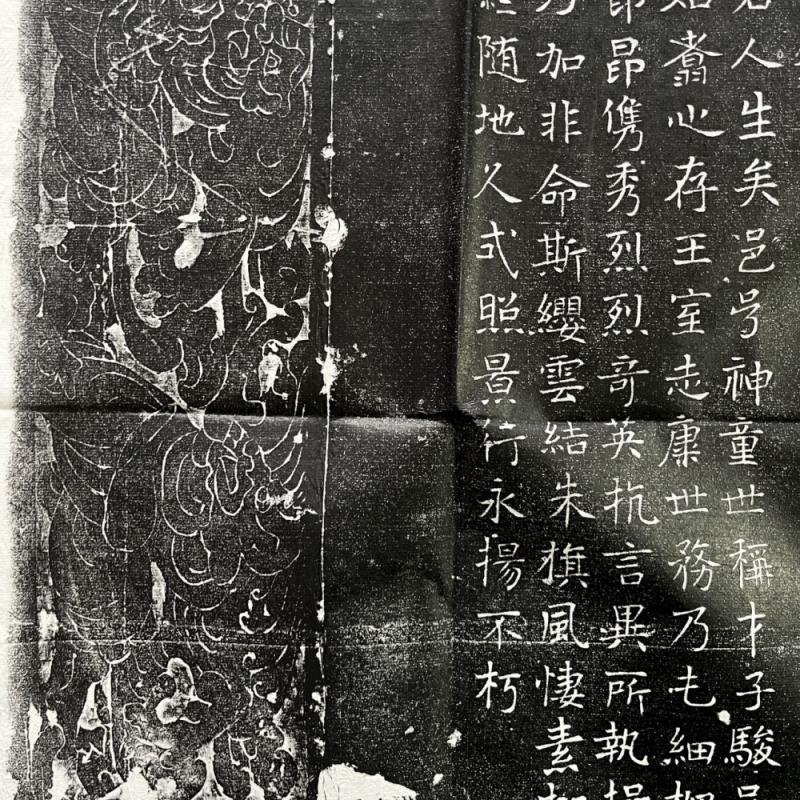 人生矣邑号神童世稱才子駿
如翥心存王室志康世務乃屯細
昂昂儁秀烈烈奇英抗言異所執
加非命斯纓雲結朱旗風悽素
随地久式照景行永揚不朽